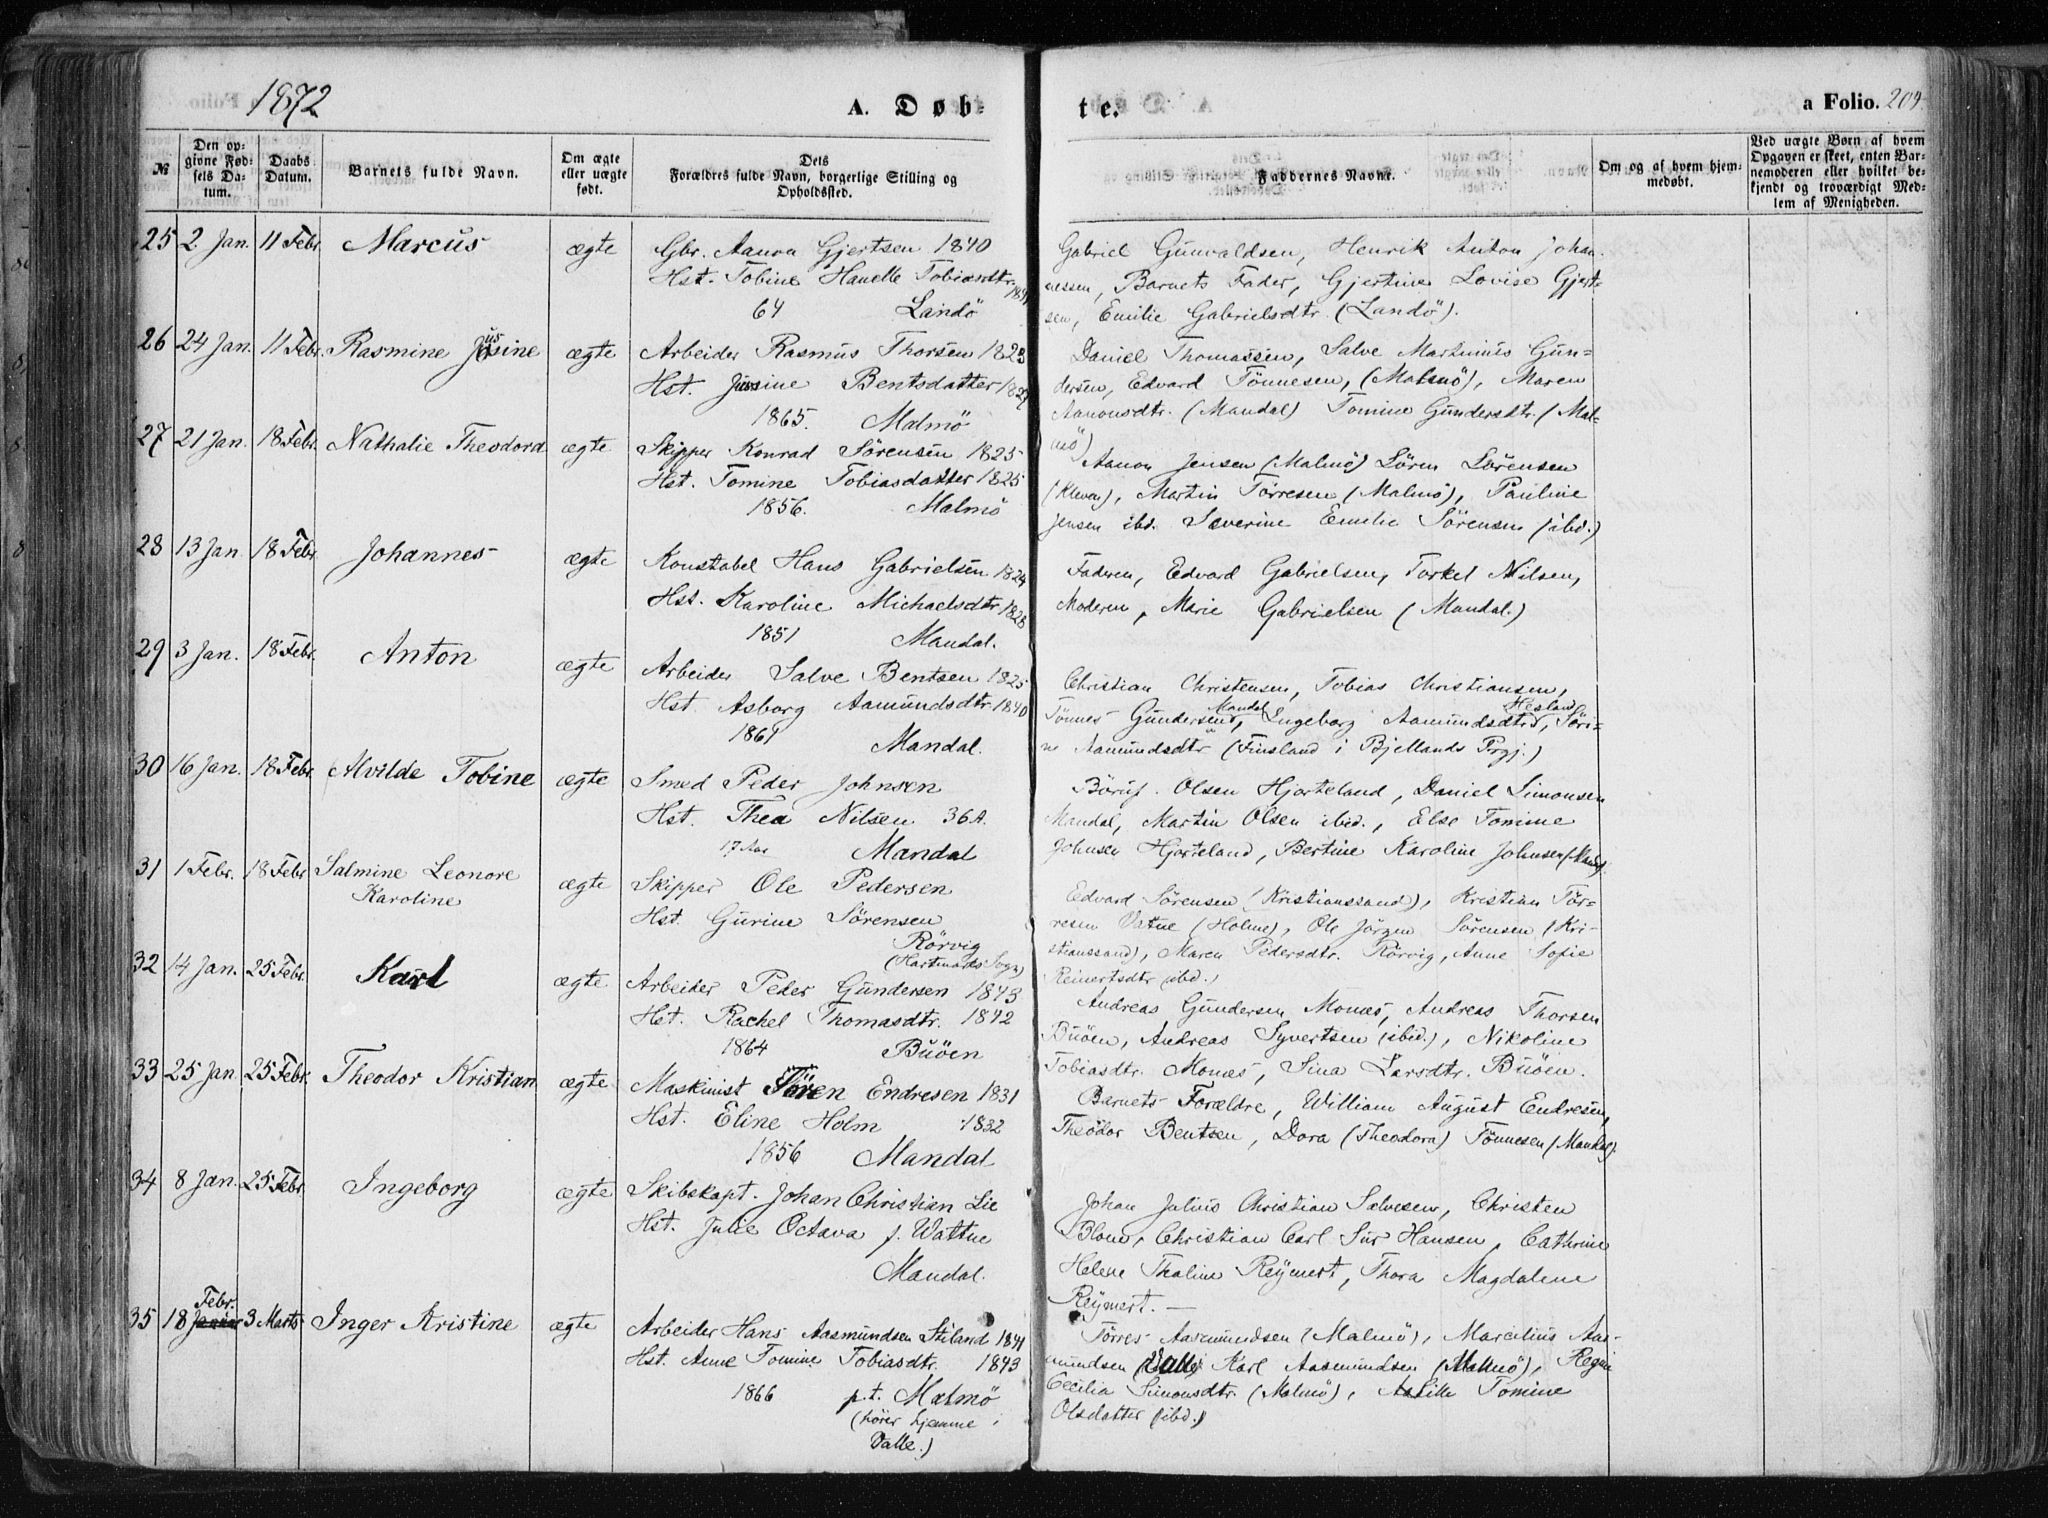 1872
A. Døb-
№
Den op-
givne Fød-
sels Da-
tum.
Daabs
Datum.
Barnets fulde Navn.
Om ægte
eller uægte
født.
Dets
Forældres fulde Navn, borgerlige Stilling og
Opholdssted.
25 2 Jan. 11 Febr. Marcus ægte Gbr. Aanon Gjertsen 1840
Hst. Tobine Hanelle Tobiasdtr.
64 Landö
26 24 Jan. 11 Febr. Rasmine Jusine ægte Arbeider Rasmus Thorsen 1823
Hst. Jusine Bentsdatter 1827
1865. Malmö
27 21 Jan. 18 Febr. Nathalie Theodora ægte Skipper Konrad Sörensen 1825
Hst. Tomine Tobiasdatter 1825
1856. Malmö
28 13 Jan 18 Febr. Johannes ægte Konstabel Hans Gabrielsen 1824
Hst. Karoline Michaelsdtr. 1828
1851 Mandal.
29 3 Jan. 18 Febr. Anton ægte Arbeider Salve Bentsen 1825
Hst. Asborg Aamundsdtr. 1840
1861 Mandal.
30 16 Jan. 18 Febr. Alvilde Tobine ægte Smed Peder Johnsen
Hst. Thea Nilsen 36 A.
17 Aar Mandal
31 1 Febr. 18 Febr Salmine Leonore
Karoline ægte Skipper Ole Pedersen
Hst. Gurine Sörensen
Rörvig
(Hartmarks Sogn)
32 14 Jan. 25 Febr. Karl ægte Arbeider Peder Gundersen 1843
Hst. Rachel Thomasdtr. 1842
1864 Buöen
33 25 Jan. 25 Febr. Theodor Kristian ægte Maskinist Sören Endresen 1831
Hst. Eline Holm 1832
1856 Mandal
34 8 Jan. 25 Febr. Ingeborg ægte Skibskapt. Johan Christian Lie
Hst. Julie Octava f. Wattne
Mandal.
Febr.
35 18 Januar 3 Marts Inger Kristine ægte Arbeider Hans Aasmundsen Stiland 1841
Hst. Anne Tomine Tobiasdtr. 1843
1866 p.t. Malmö
(hörer hjemme i
Valle.)
te.
a Folio. 209.
Faddernes Navne.
Om og af hvem hjem-
medøbt.
Ved uægte Børn af hvem
Opgaven er skeet, enten Bar-
nemoderen eller hvilket be-
kjendt og troværdigt Med-
lem af Menigheden.
Gabriel Gunvaldsen, Henrik Anton Johan-
nessen, Barnets Fader, Gjertine Lovise Gjert-
sen, Emilie Gabrielsdtr. (Landö).
Daniel Thomassen, Salve Martinius Gun-
dersen, Edvard Tönnesen, (Malmö), Maren
Aanonsdtr. (Mandal) Tomine Gundersdtr. (Mal-
mö)
Aanon Jensen (Malmö) Sören Sörensen
(Kleven), Martin Törresen (Malmö), Pauline
Jensen ibd. Severine Emilie Sörensen (ibd.)
Faderen, Edvard Gabrielsen, Torkel Nilsen,
Moderen, Marie Gabrielsen (Mandal.)
Christian Christensen, Tobias Christiansen,
Mandal Hesland
Tönnes Gundersen, Ingeborg Aamundsdtr, Söri-
ne Aamundsdtr (Finsland i Bjellands Prgj.)
Böruf Olsen Hjorteland, Daniel Simonsen
Mandal, Martin Olsen ibid., Else Tomine
Johnsen Hjorteland, Bertine Karoline Johnsen (Mandal)
Edvard Sörensen (Kristianssand), Kristian Tör-
resen Vatne (Holme), Ole Jörgen Sörensen (Kri-
stianssand), Maren Pedersdtr. Rörvig, Anne Sofie
Reinertsdtr (ibd.)
Andreas Gundersen Monæs, Andreas Thorsen
Buöen, Andreas Syvertsen (ibid.), Nikoline
Tobiasdtr. Monæs, Sina Larsdtr. Buöen.
Barnets Forældre, William August Endresen,
Theodor Bentsen, Dora (Theodora) Tönnesen (Mandal).
Johan Julius Christian Salvesen, Christen
Blom, Christian Carl Hansen, Cathrine
Helene Thaline Reymert, Thora Magdalene
Reymert. —
Törres Aasmundsen (Malmö), Marcilius Aas-
mundsen (Valle) Karl Aasmundsen (Malmö), Regine
Cecilia Simonsdtr. (Malmö), Tomine
Olsdatter (ibd.)